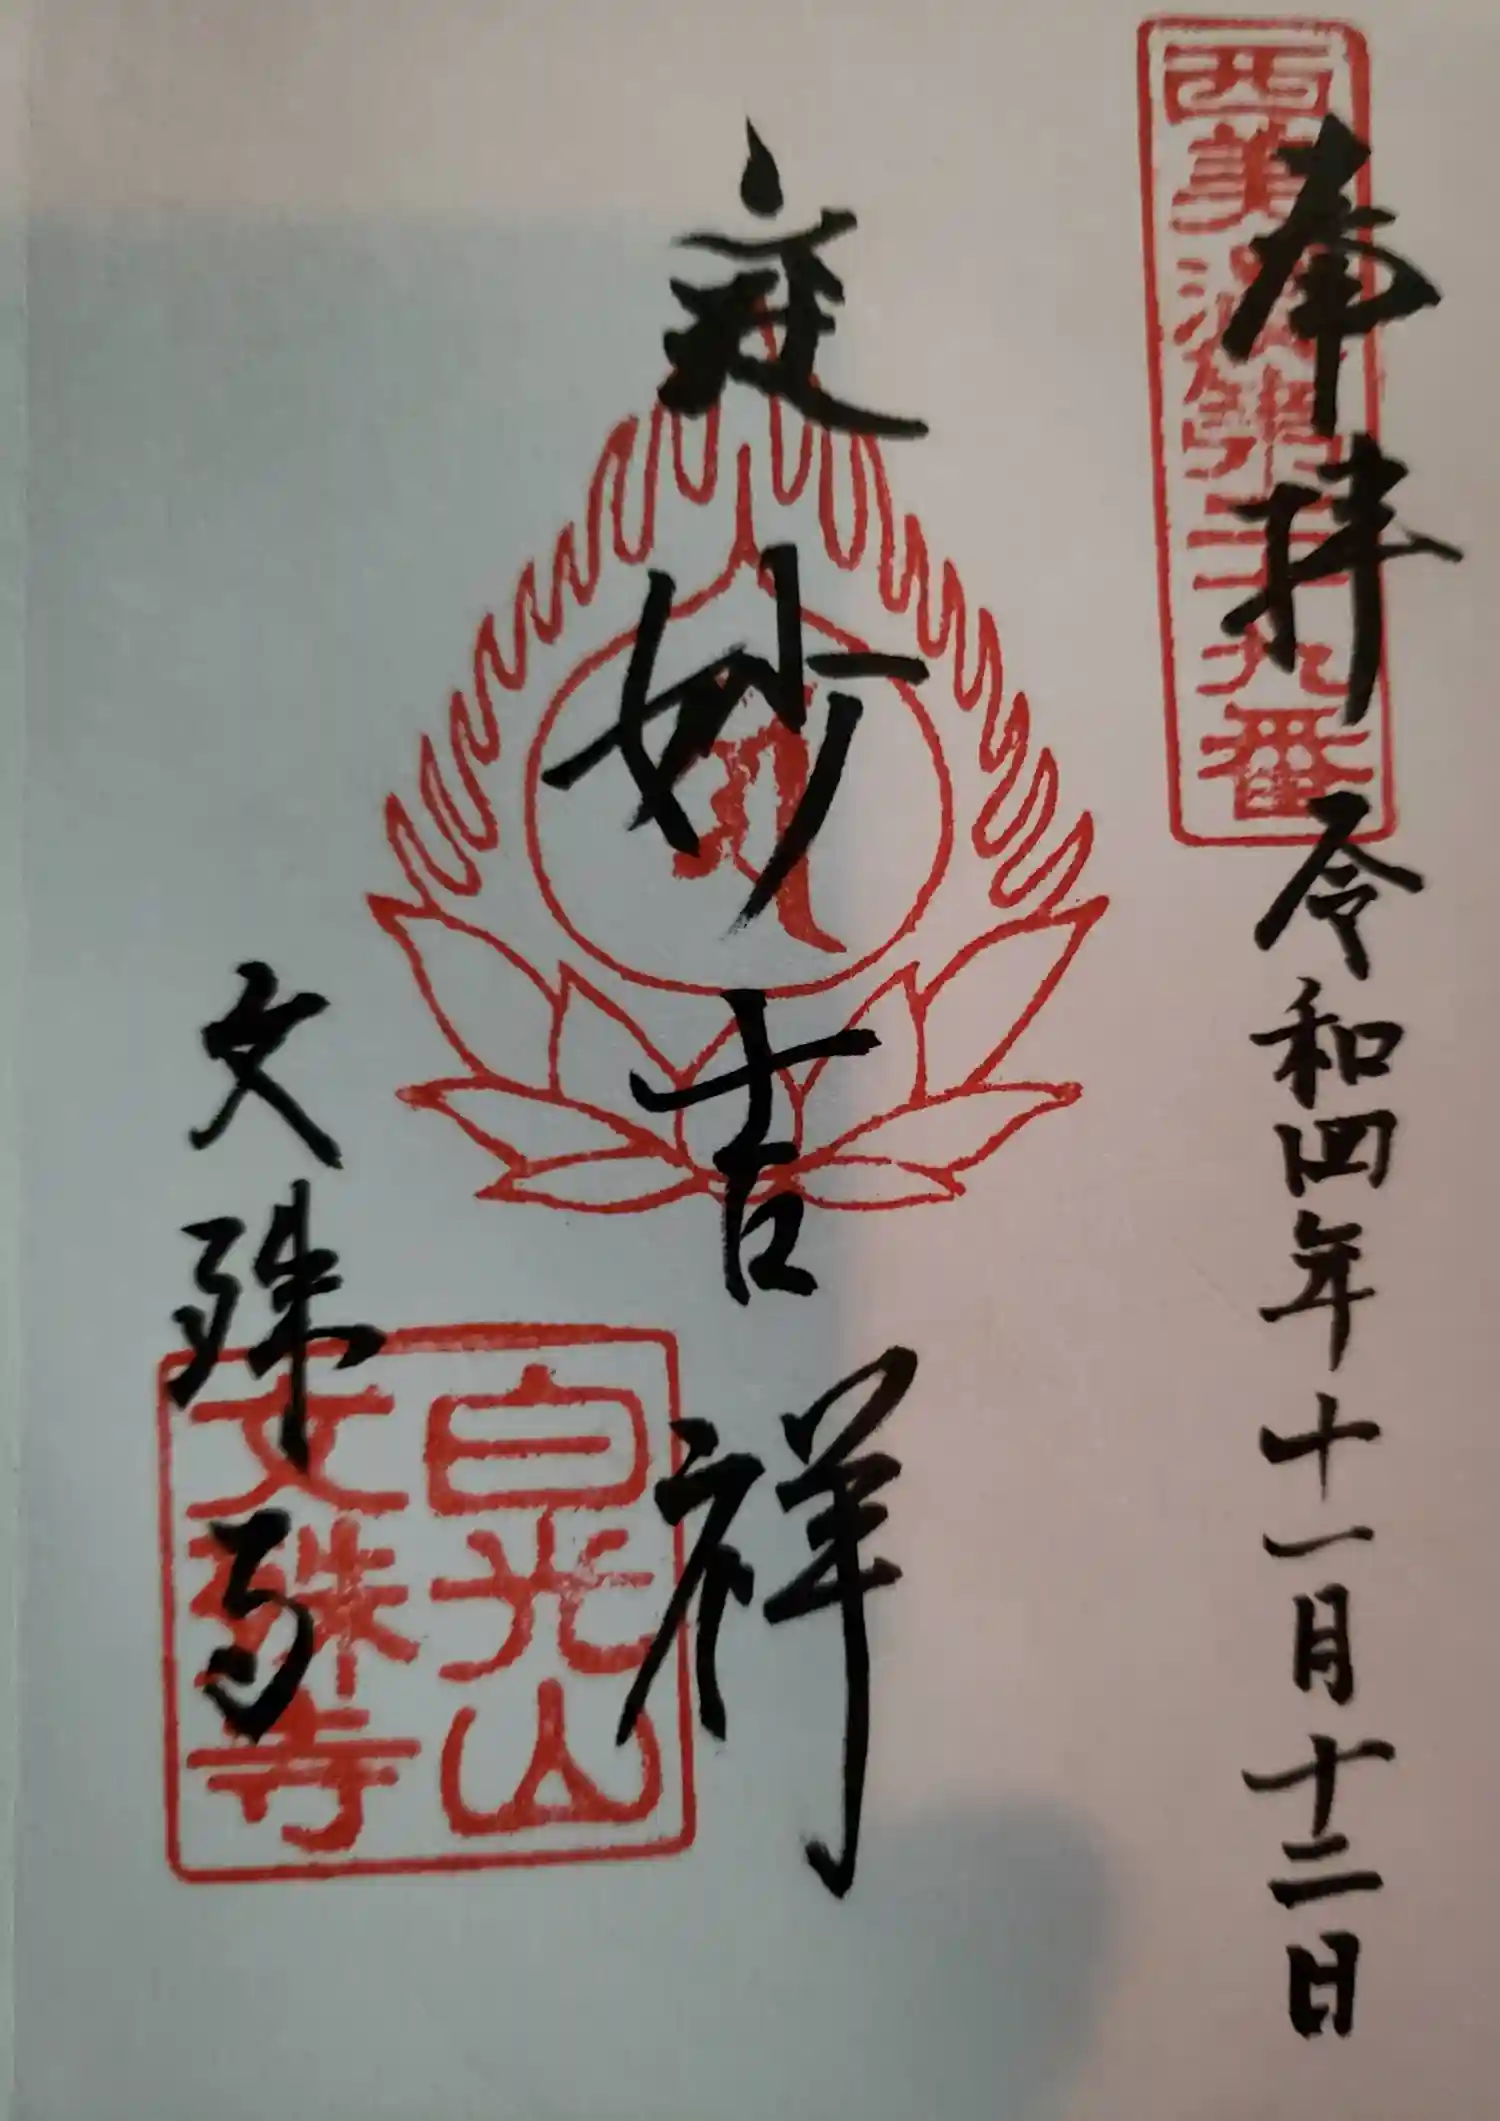 西美濃第二十九番
奉拝 令和四年十一月十二日
妙吉祥
文殊寺
白光山
文殊寺